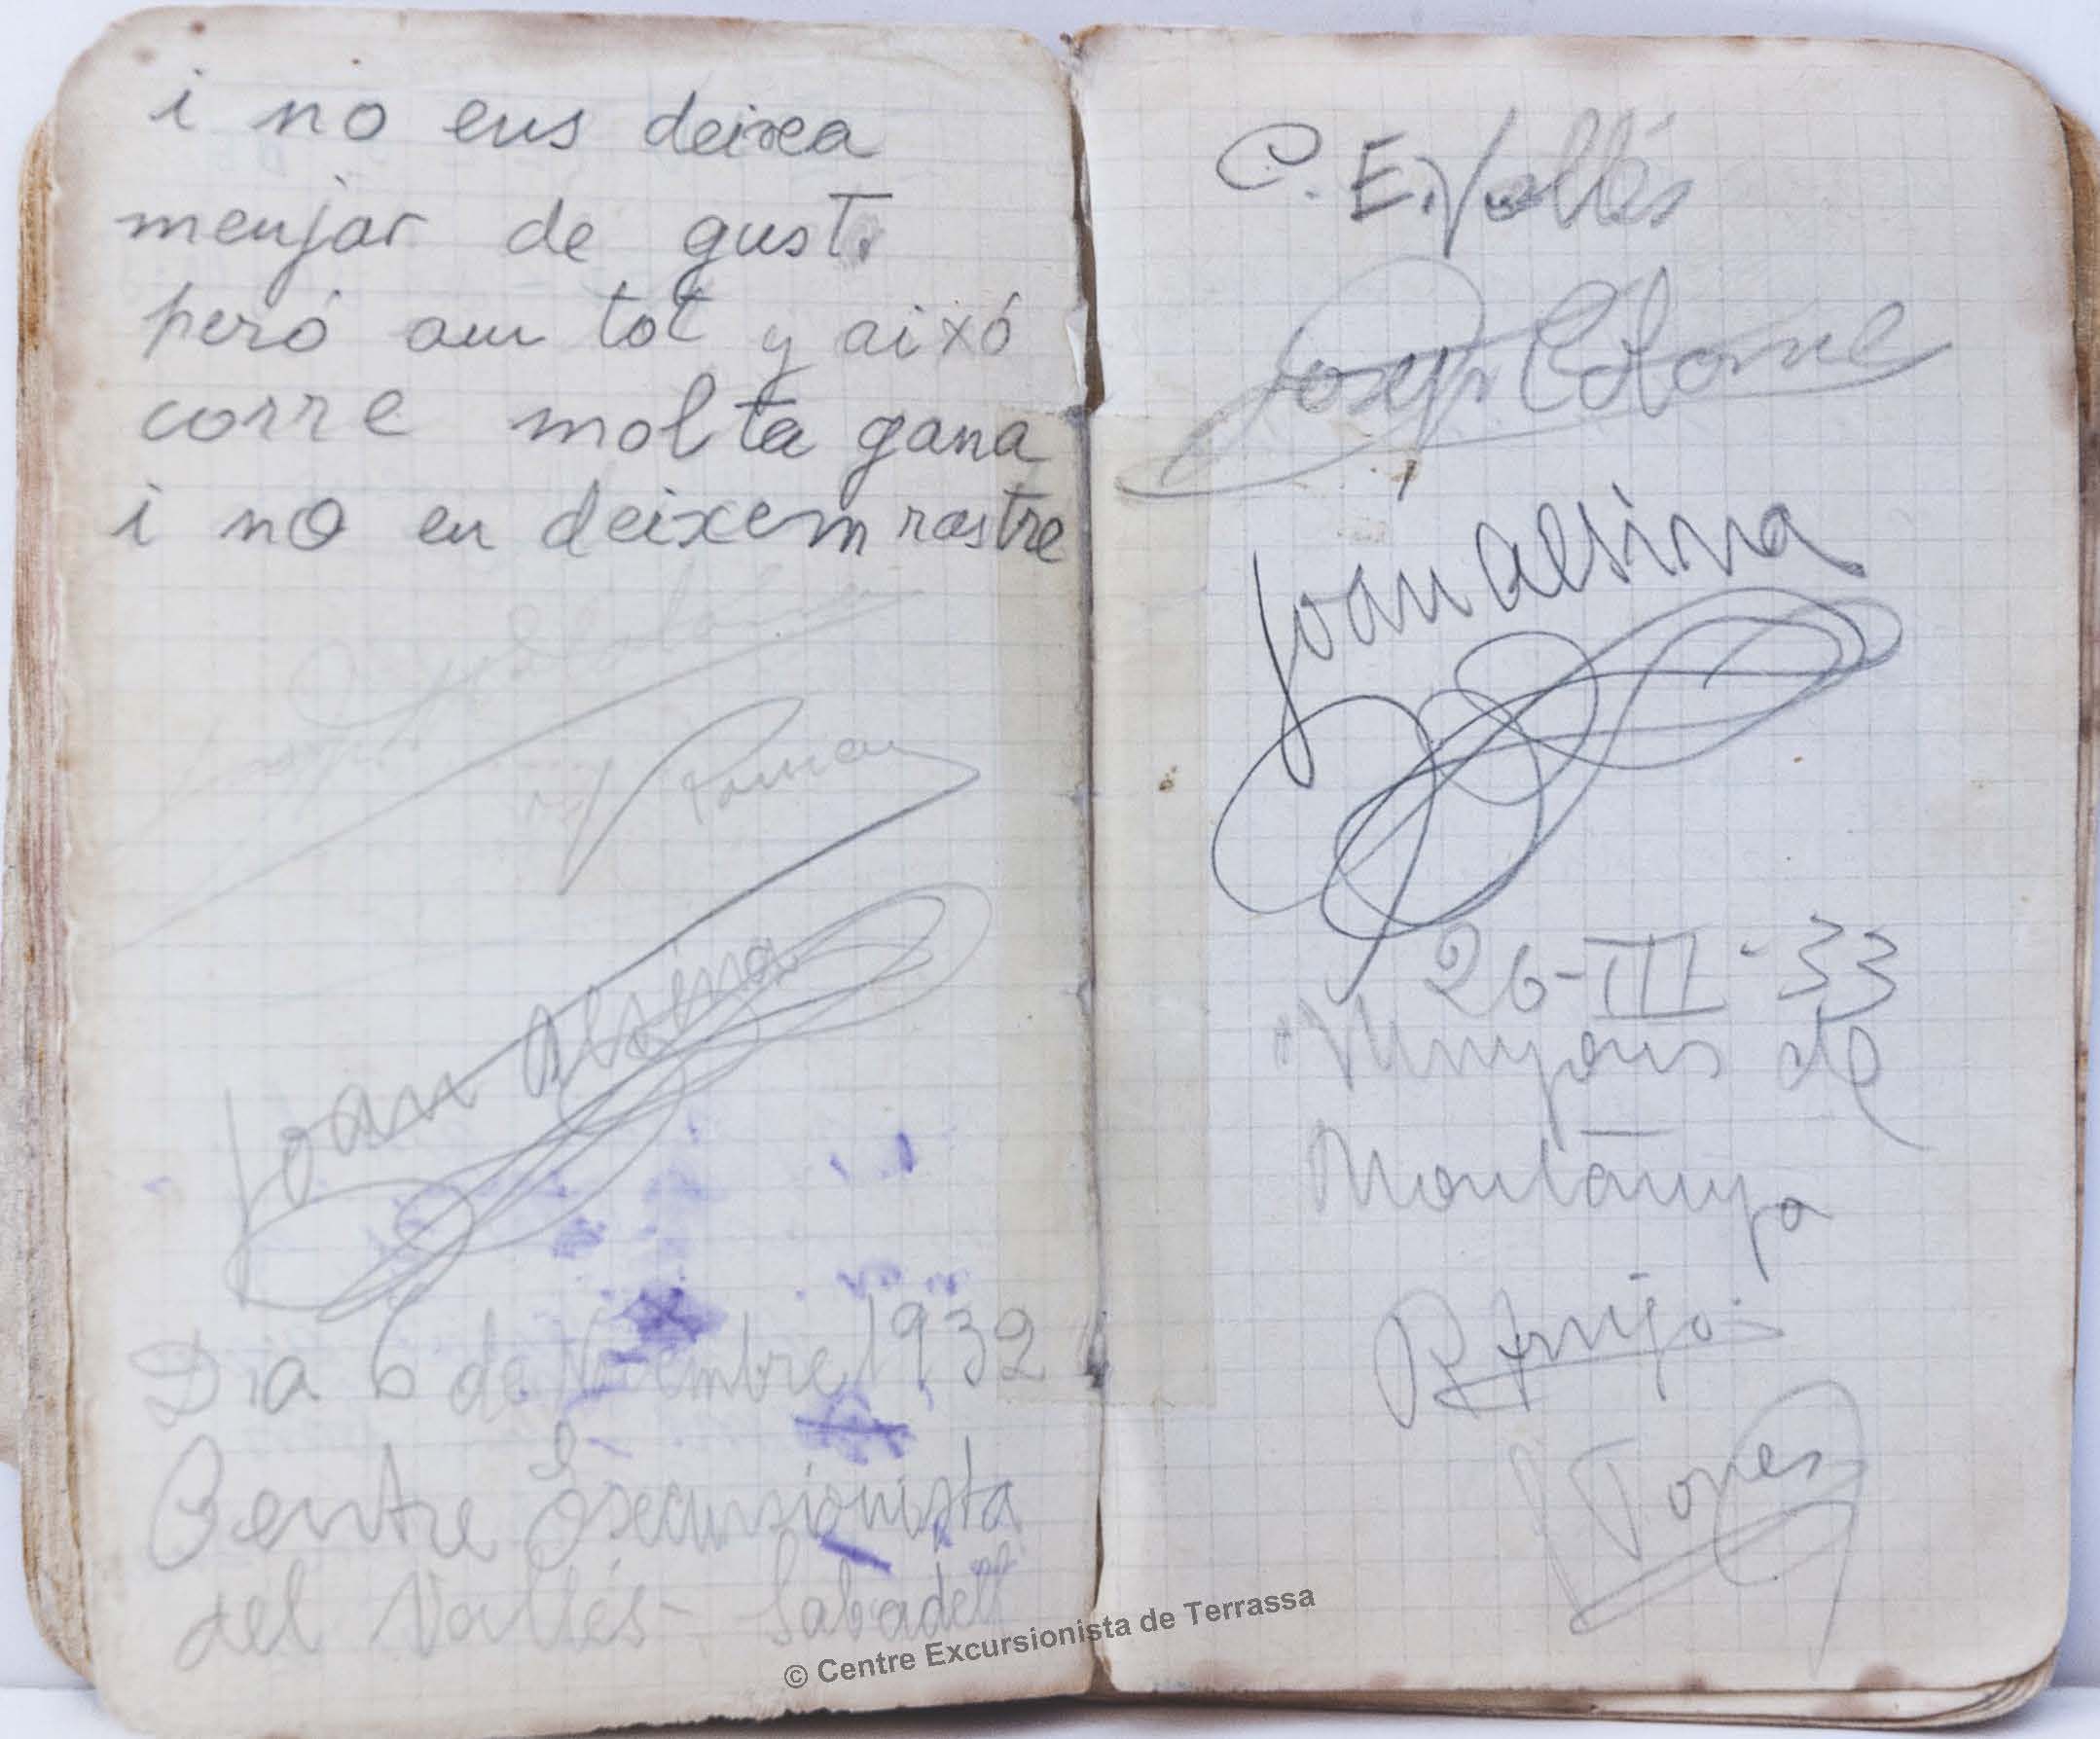 i no ens deixea
menjar de gust.
peró am tot y aixó
corre molta gana
i no en deixem rastre
Joan Alsina
Dia 6 de Novembre 1932
Centre Excursionista
del Vallés - Sabadell
C. E. Vallés
Josep Colome
Joan Alsina
26-III-33
Minyons de
Montanya
Torres
© Centre Excursionista de Terrassa